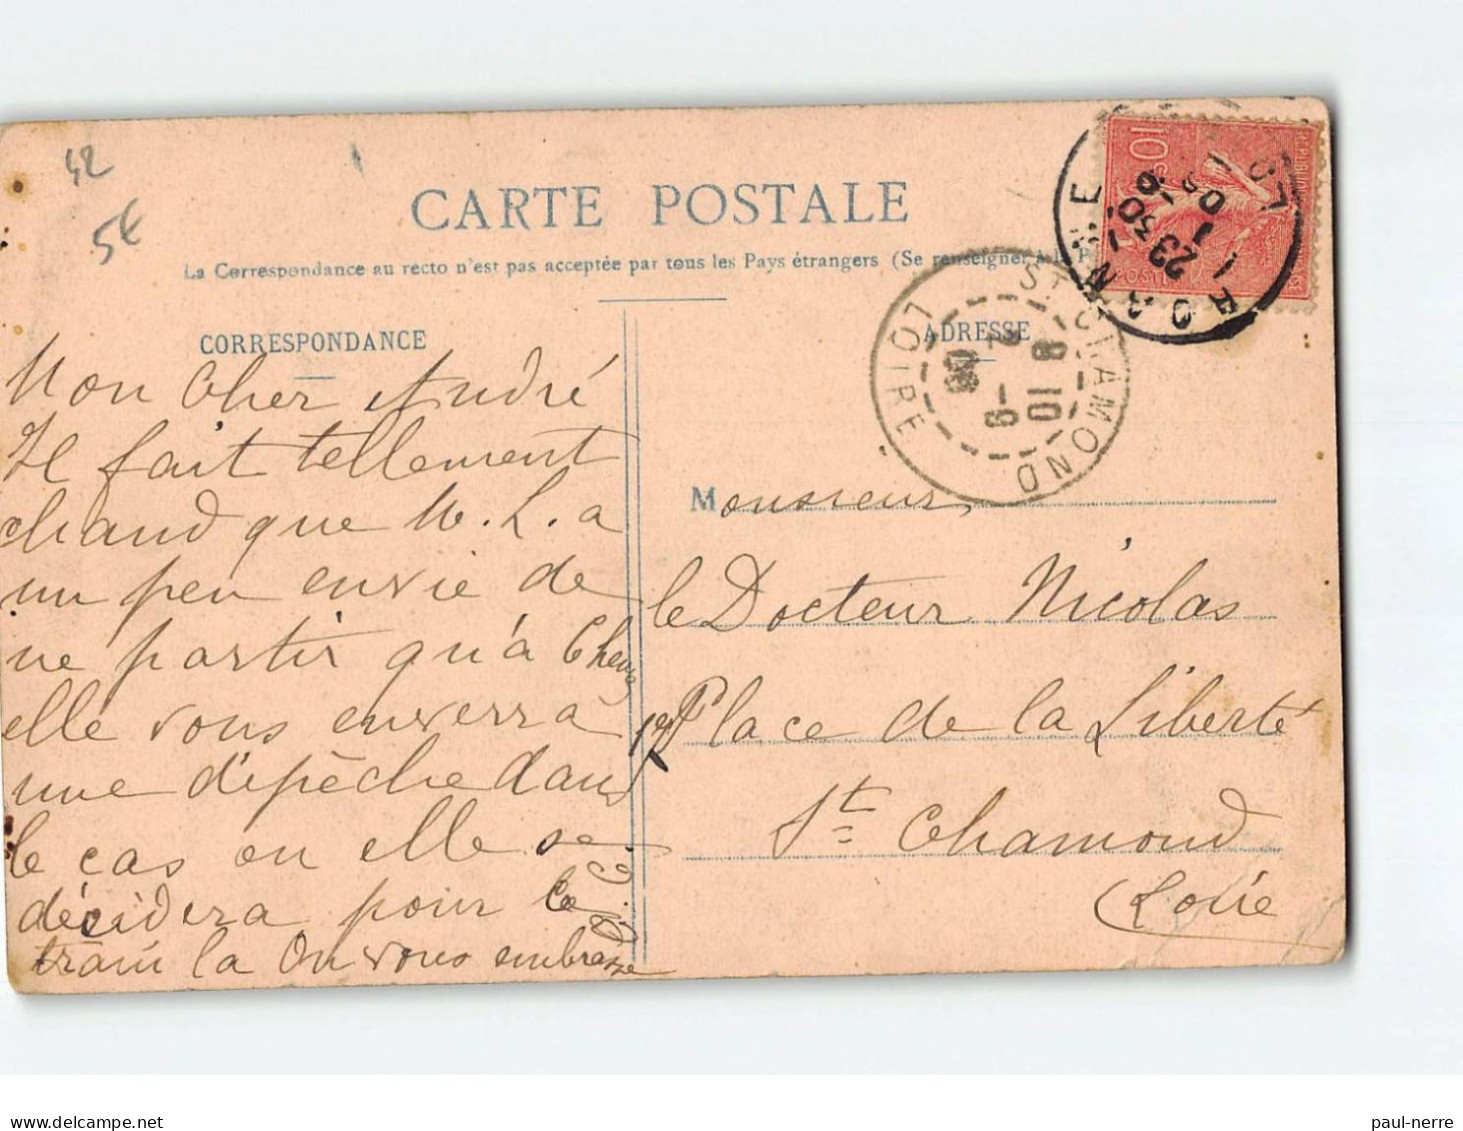 42
5€
CARTE POSTALE
La Correspondance au recto n'est pas acceptée par tous les Pays étrangers (Se renseigner à la P
CORRESPONDANCE
ADRESSE
10
POSTE
ROANNE
23 30
1 - 9
LO
ST CHAMOND
LOIRE
10 8
6 - 2
Mon Cher André
Il fait tellement
chaud que M. L. a
un peu envie de
ne partir qu'à
elle vous enverra
une dépèche dans
le cas ou elle se
décidera pour le
train la On vous embrasse
Monsieur
le Docteur Nicolas
Place de la Liberté
St Chamond
Loire
paul-nerre